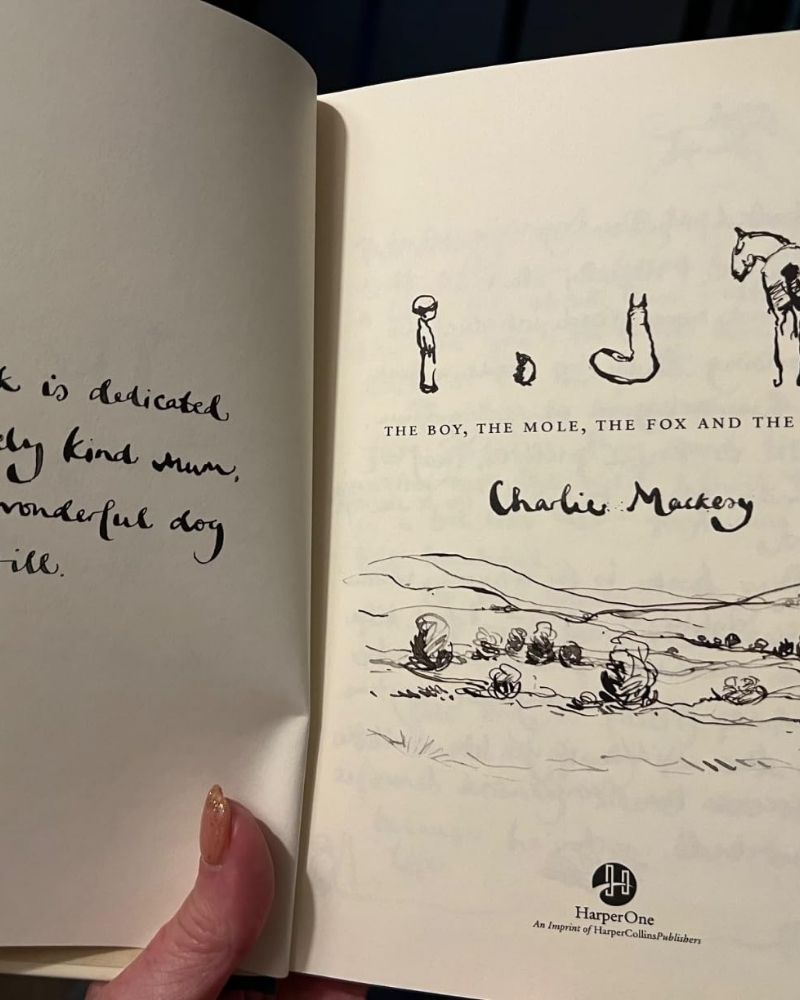 is dedicated
kind mum,
wonderful dog
THE BOY, THE MOLE, THE FOX AND THE
Charlie Mackesy
HarperOne
An Imprint of HarperCollinsPublishers